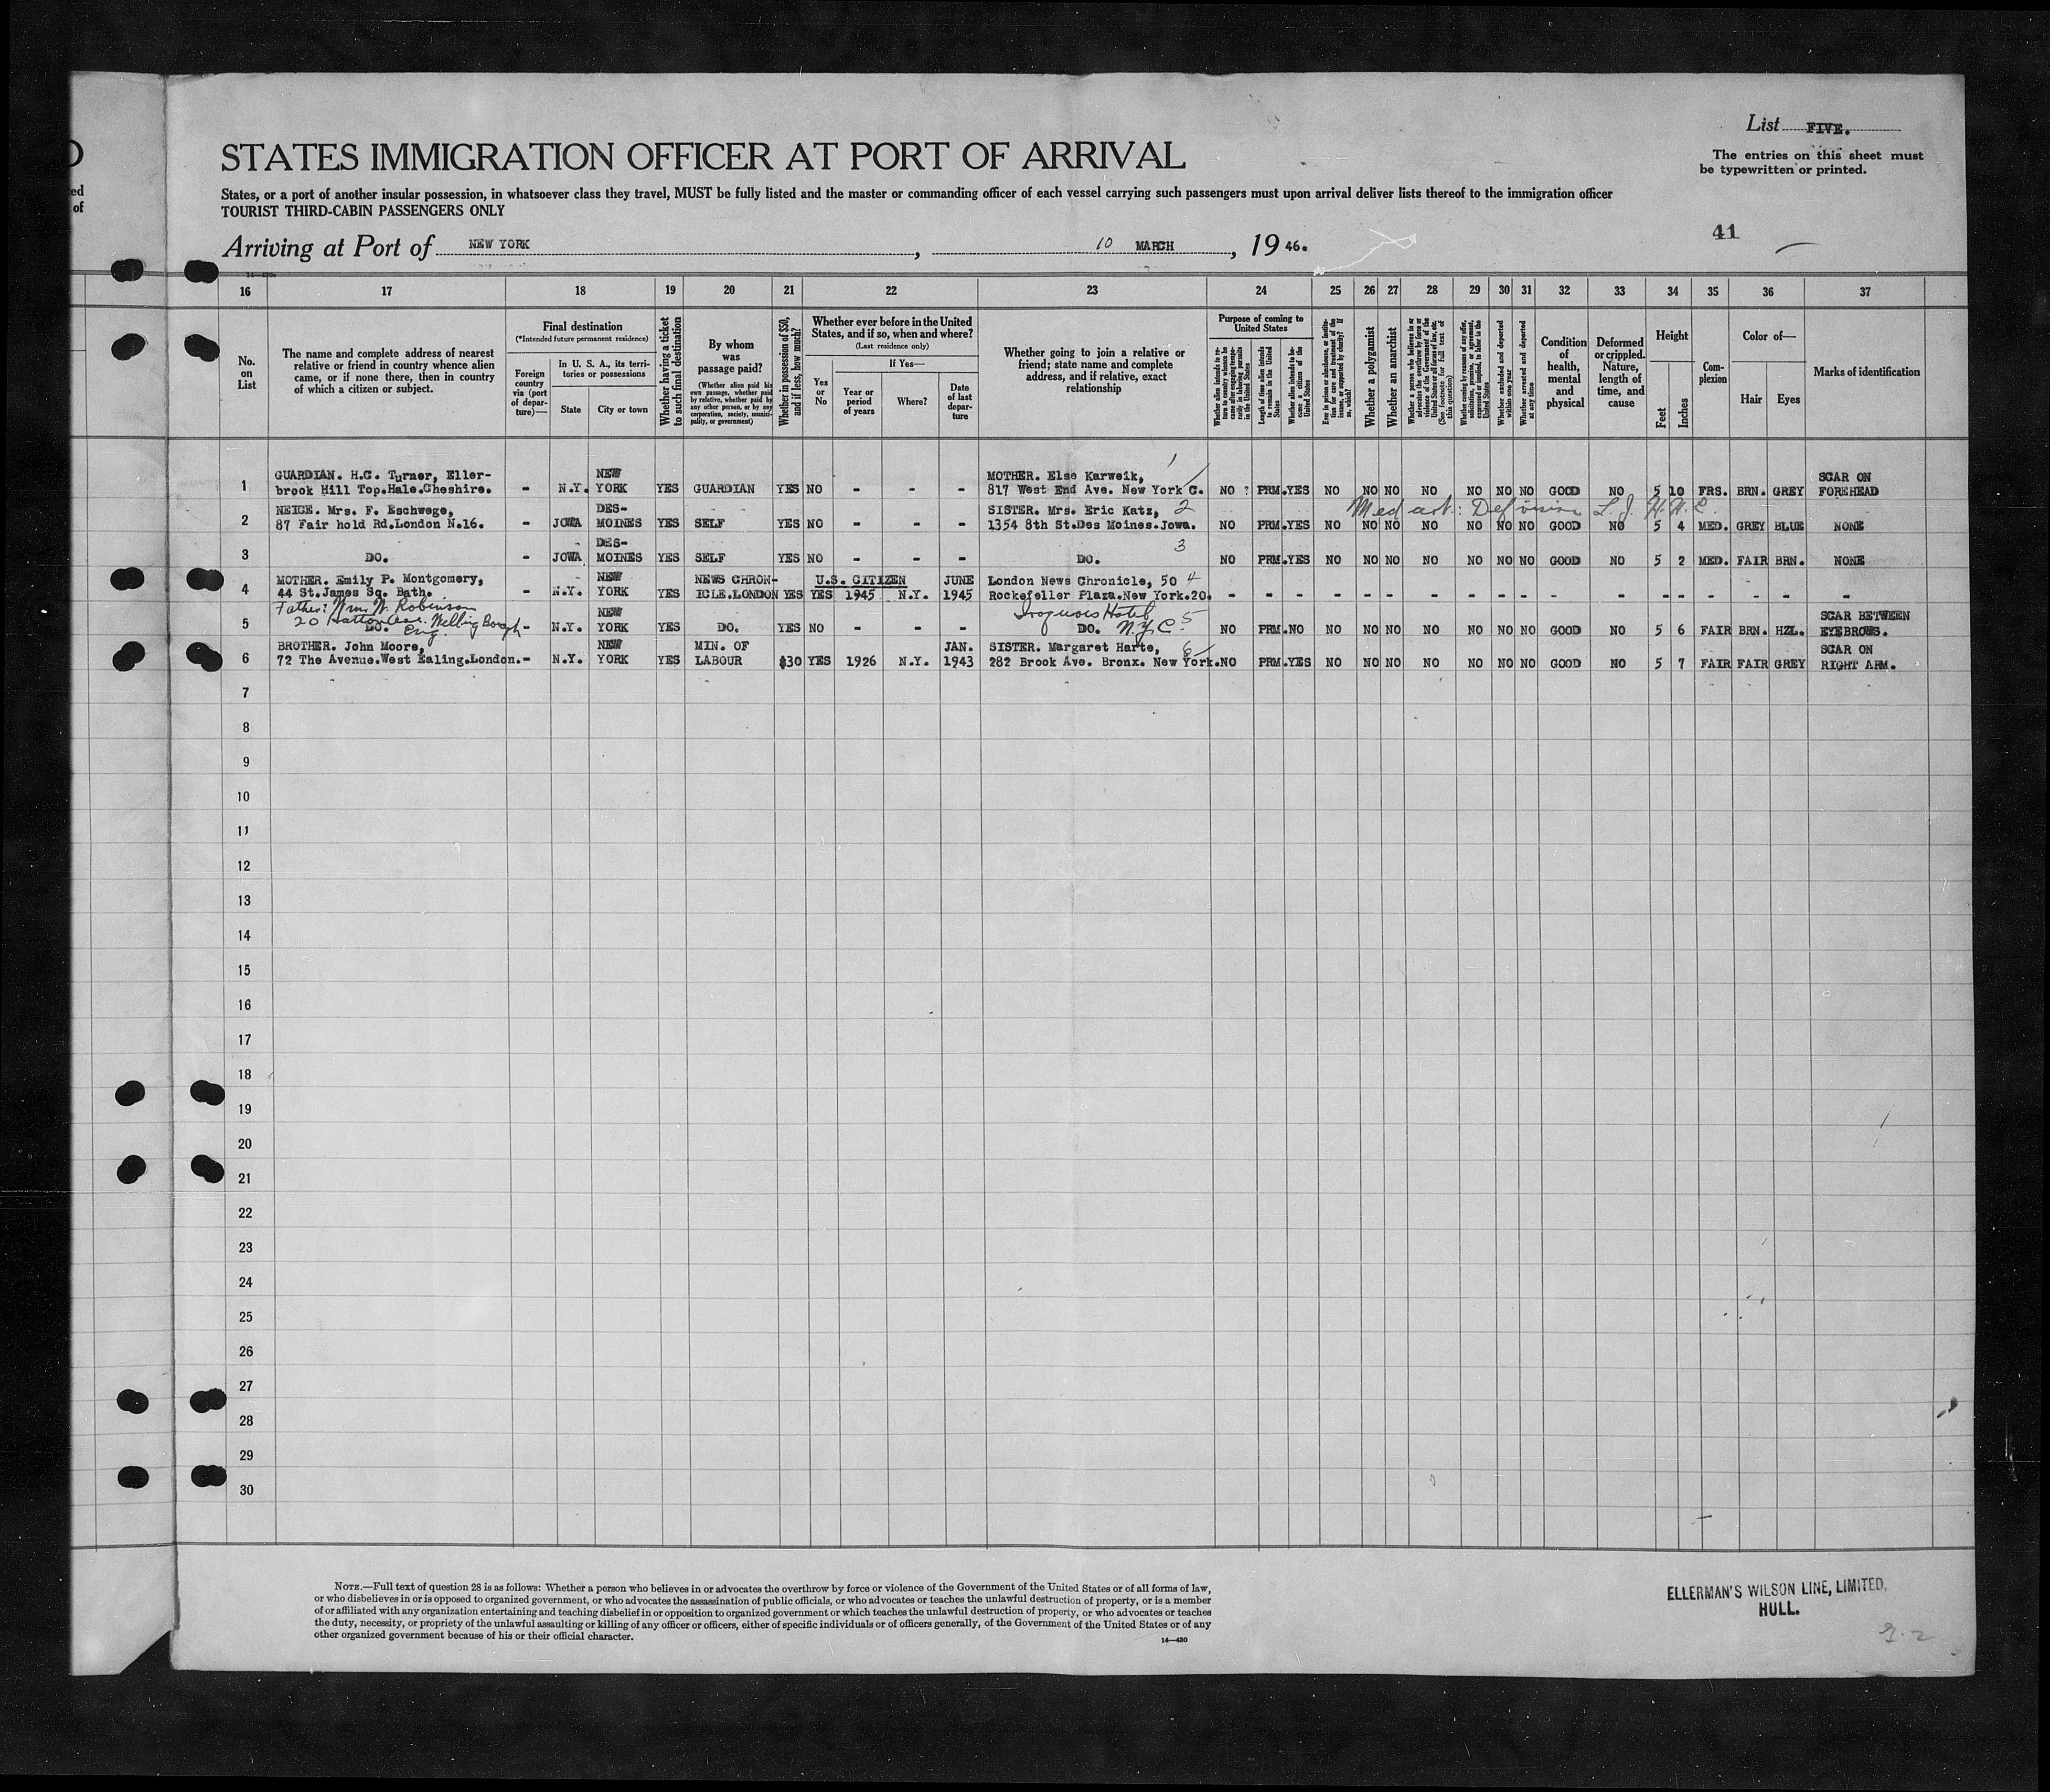 List FIVE.
The entries on this sheet must
be typewritten or printed.
STATES IMMIGRATION OFFICER AT PORT OF ARRIVAL
States, or a port of another insular possession, in whatsoever class they travel, MUST be fully listed and the master or commanding officer of each vessel carrying such passengers must upon arrival deliver lists thereof to the immigration officer
TOURIST THIRD-CABIN PASSENGERS ONLY
41
Arriving at Port of NEW YORK, 10 MARCH, 1946.
16 17 18 19 20 21 22 23 24 25 26 27 28 29 30 31 32 33 34 35 36 37
No.
on
List
The name and complete address of nearest
relative or friend in country whence alien
came, or if none there, then in country
of which a citizen or subject.
Final destination
(*Intended future permanent residence)
Foreign
country
via (port
of depar-
ture)—
In U. S. A., its terri-
tories or possessions
State
City or town
Whether having a ticket
to such final destination
By whom
was
passage paid?
(Whether alien paid his
own passage, whether paid
by relative, whether paid by
any other person, or by any
corporation, society, munici-
pality, or government)
Whether in possession of $50,
and if less, how much?
Whether ever before in the United
States, and if so, when and where?
(Last residence only)
Yes
or
No
If Yes—
Year or
period
of years
Where?
Date
of last
depar-
ture
Whether going to join a relative or
friend; state name and complete
address, and if relative, exact
relationship
Purpose of coming to
United States
Length of time alien intends
to remain in the United
States
Whether alien intends to be-
come a citizen of the
United States
Whether a polygamist
Whether an anarchist
Whether arrested and deported
at any time
Condition
of
health,
mental
and
physical
Deformed
or crippled.
Nature,
length of
time, and
cause
Height
Feet
Inches
Com-
plexion
Color of—
Hair
Eyes
Marks of identification
GUARDIAN. H.C. Turner, Eller- NEW MOTHER. Else Karweik, 1 SCAR ON
1 brook Hill Top.Hale.Cheshire. - N.Y. YORK YES GUARDIAN YES NO - - - 817 West End Ave. New York C. NO ? PRM. YES NO NO NO NO NO NO NO GOOD NO 5 10 FRS. BRN. GREY FOREHEAD
NEICE. Mrs. F. Eschwege, DES- SISTER. Mrs. Eric Katz, 2 Med
2 87 Fair hold Rd.London N.16. - JOWA MOINES YES SELF YES NO - - - 1354 8th St.Des Moines.Jowa. NO PRM. YES NO NO NO NO NO NO NO GOOD NO 5 4 MED. GREY BLUE NONE
DES- 3
3 DO. - JOWA MOINES YES SELF YES NO - - - DO. NO PRM. YES NO NO NO NO NO NO NO GOOD NO 5 2 MED. FAIR BRN. NONE
MOTHER. Emily P. Montgomery, NEW NEWS CHRON- U.S. CITIZEN JUNE London News Chronicle, 50 4
4 44 St.James Sq. Bath. - N.Y. YORK YES ICLE.LONDON YES YES 1945 N.Y. 1945 Rockefeller Plaza.New York.20. - - - - - - - - - - - - - - - - - -
Father: Wm. W. Robinson NEW Iroquois Hotel SCAR BETWEEN
20 Hatton Ave. Welling Borough
5 DO. Eng. - N.Y. YORK YES DO. YES NO - - - DO. N.Y.C. 5 NO PRM. NO NO NO NO NO NO NO NO GOOD NO 5 6 FAIR BRN. HZL. EYEBROWS.
BROTHER. John Moore, NEW MIN. OF JAN. SISTER. Margaret Harte, 6 SCAR ON
6 72 The Avenue.West Ealing.London. - N.Y. YORK YES LABOUR $30 YES 1926 N.Y. 1943 282 Brook Ave. Bronx. New York. NO PRM. YES NO NO NO NO NO NO NO GOOD NO 5 7 FAIR FAIR GREY RIGHT ARM.
7
8
9
10
11
12
13
14
15
16
17
18
19
20
21
22
23
24
25
26
27
28
29
30
NOTE.—Full text of question 28 is as follows: Whether a person who believes in or advocates the overthrow by force or violence of the Government of the United States or of all forms of law,
or who disbelieves in or is opposed to organized government, or who advocates the assassination of public officials, or who advocates or teaches the unlawful destruction of property, or is a member
of or affiliated with any organization entertaining and teaching disbelief in or opposition to organized government or which teaches the unlawful destruction of property, or who advocates or teaches
the duty, necessity, or propriety of the unlawful assaulting or killing of any officer or officers, either of specific individuals or of officers generally, of the Government of the United States or of any
other organized government because of his or their official character.
14—430
ELLERMAN'S WILSON LINE, LIMITED,
HULL.